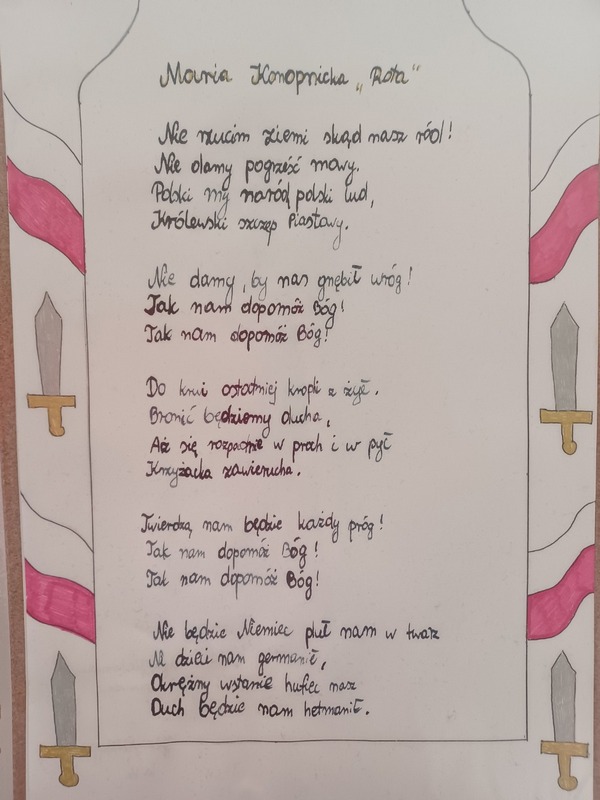 Maria Konopnicka „Rota"
Nie rzucim ziemi skąd nasz ród!
Nie damy pogrześć mowy.
Polski my naród polski lud,
Królewski szczep Piastowy.
Nie damy, by nas gnębił wróg!
Tak nam dopomóż Bóg!
Tak nam dopomóż Bóg!
Do krwi ostatniej kropli z żył.
Bronić będziemy ducha,
Aż się rozpadnie w proch i w pył
Krzyżacka zawierucha.
Twierdzą nam będzie każdy próg!
Tak nam dopomóż Bóg!
Tak nam dopomóż Bóg!
Nie będzie Niemiec pluł nam w twarz
Ni dzieci nam germanił,
Orężny wstanie hufiec nasz
Duch będzie nam hetmanił.